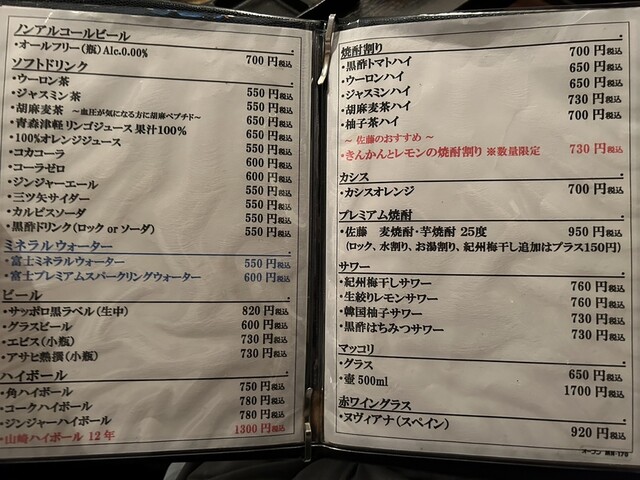 ノンアルコールビール
・オールフリー(瓶)Alc.0.00% 700円税込
ソフトドリンク
・ウーロン茶 550円税込
・ジャスミン茶 550円税込
・胡麻麦茶 ～血圧が気になる方に胡麻ペプチド～ 550円税込
・青森津軽リンゴジュース 果汁100% 650円税込
・100%オレンジジュース 650円税込
・コカコーラ 550円税込
・コーラゼロ 600円税込
・ジンジャーエール 600円税込
・三ツ矢サイダー 550円税込
・カルピスソーダ 550円税込
・黒酢ドリンク(ロック or ソーダ) 550円税込
ミネラルウォーター
・富士ミネラルウォーター 550円税込
・富士プレミアムスパークリングウォーター 600円税込
ビール
・サッポロ黒ラベル(生中) 820円税込
・グラスビール 600円税込
・エビス(小瓶) 730円税込
・アサヒ熟撰(小瓶) 730円税込
ハイボール
・角ハイボール 750円税込
・コークハイボール 780円税込
・ジンジャーハイボール 780円税込
・山崎ハイボール 12年 1300円税込
焼酎割り
・黒酢トマトハイ 700円税込
・ウーロンハイ 650円税込
・ジャスミンハイ 650円税込
・胡麻麦茶ハイ 730円税込
・柚子茶ハイ 700円税込
～ 佐藤のおすすめ ～
・きんかんとレモンの焼酎割り ※数量限定 730円税込
カシス
・カシスオレンジ 700円税込
プレミアム焼酎
・佐藤 麦焼酎・芋焼酎 25度 950円税込
(ロック、水割り、お湯割り、紀州梅干し追加はプラス150円)
サワー
・紀州梅干しサワー 760円税込
・生絞りレモンサワー 760円税込
・韓国柚子サワー 730円税込
・黒酢はちみつサワー 730円税込
マッコリ
・グラス 650円税込
・壺500ml 1700円税込
赤ワイングラス
・ヌヴィアナ(スペイン) 920円税込